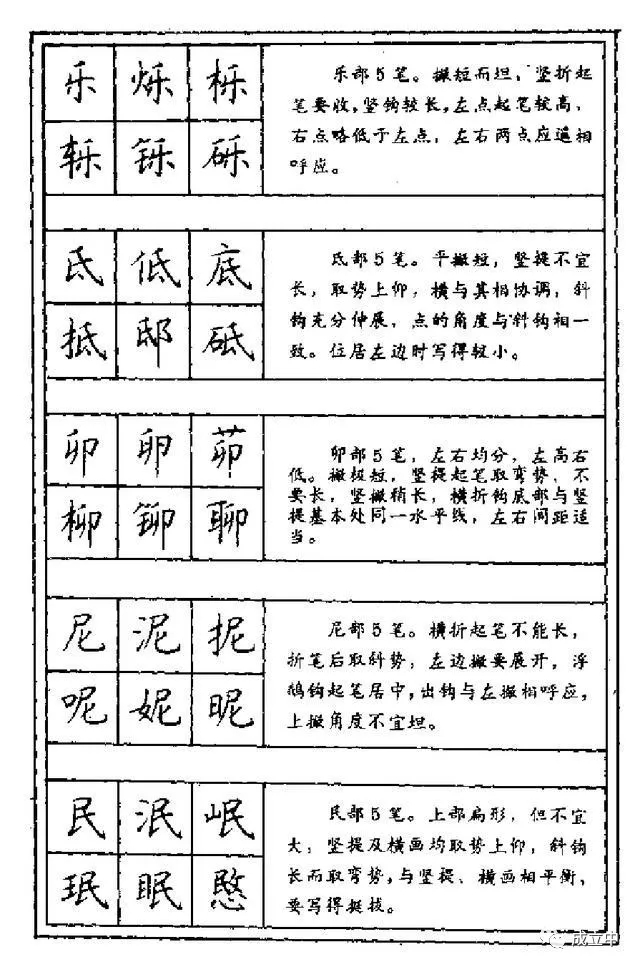 乐 烁 栎
轹 铄 砾
乐部5笔。撇短而坦，竖折起
笔要收，竖钩较长，左点起笔较高，
右点略低于左点，左右两点应遥相
呼应。
氐 低 底
抵 邸 砥
氐部5笔。平撇短，竖提不宜
长，取势上仰，横与其相协调，斜
钩充分伸展，点的角度与斜钩相一
致。位居左边时写得较小。
卯 卵 茆
柳 铆 聊
卯部5笔，左右均分，左高右
低。撇极短，竖提起笔取弯势，不
要长，竖撇稍长，横折钩底部与竖
提基本处同一水平线，左右间距适
当。
尼 泥 抳
呢 妮 昵
尼部5笔。横折起笔不能长，
折笔后取斜势，左边撇要展开，浮
鹅钩起笔居中，出钩与左撇相呼应，
上撇角度不宜坦。
民 泯 岷
珉 眠 愍
民部5笔。上部扁形，但不宜
大；竖提及横画均取势上仰，斜钩
长而取弯势，与竖提、横画相平衡，
要写得挺拔。
成立中